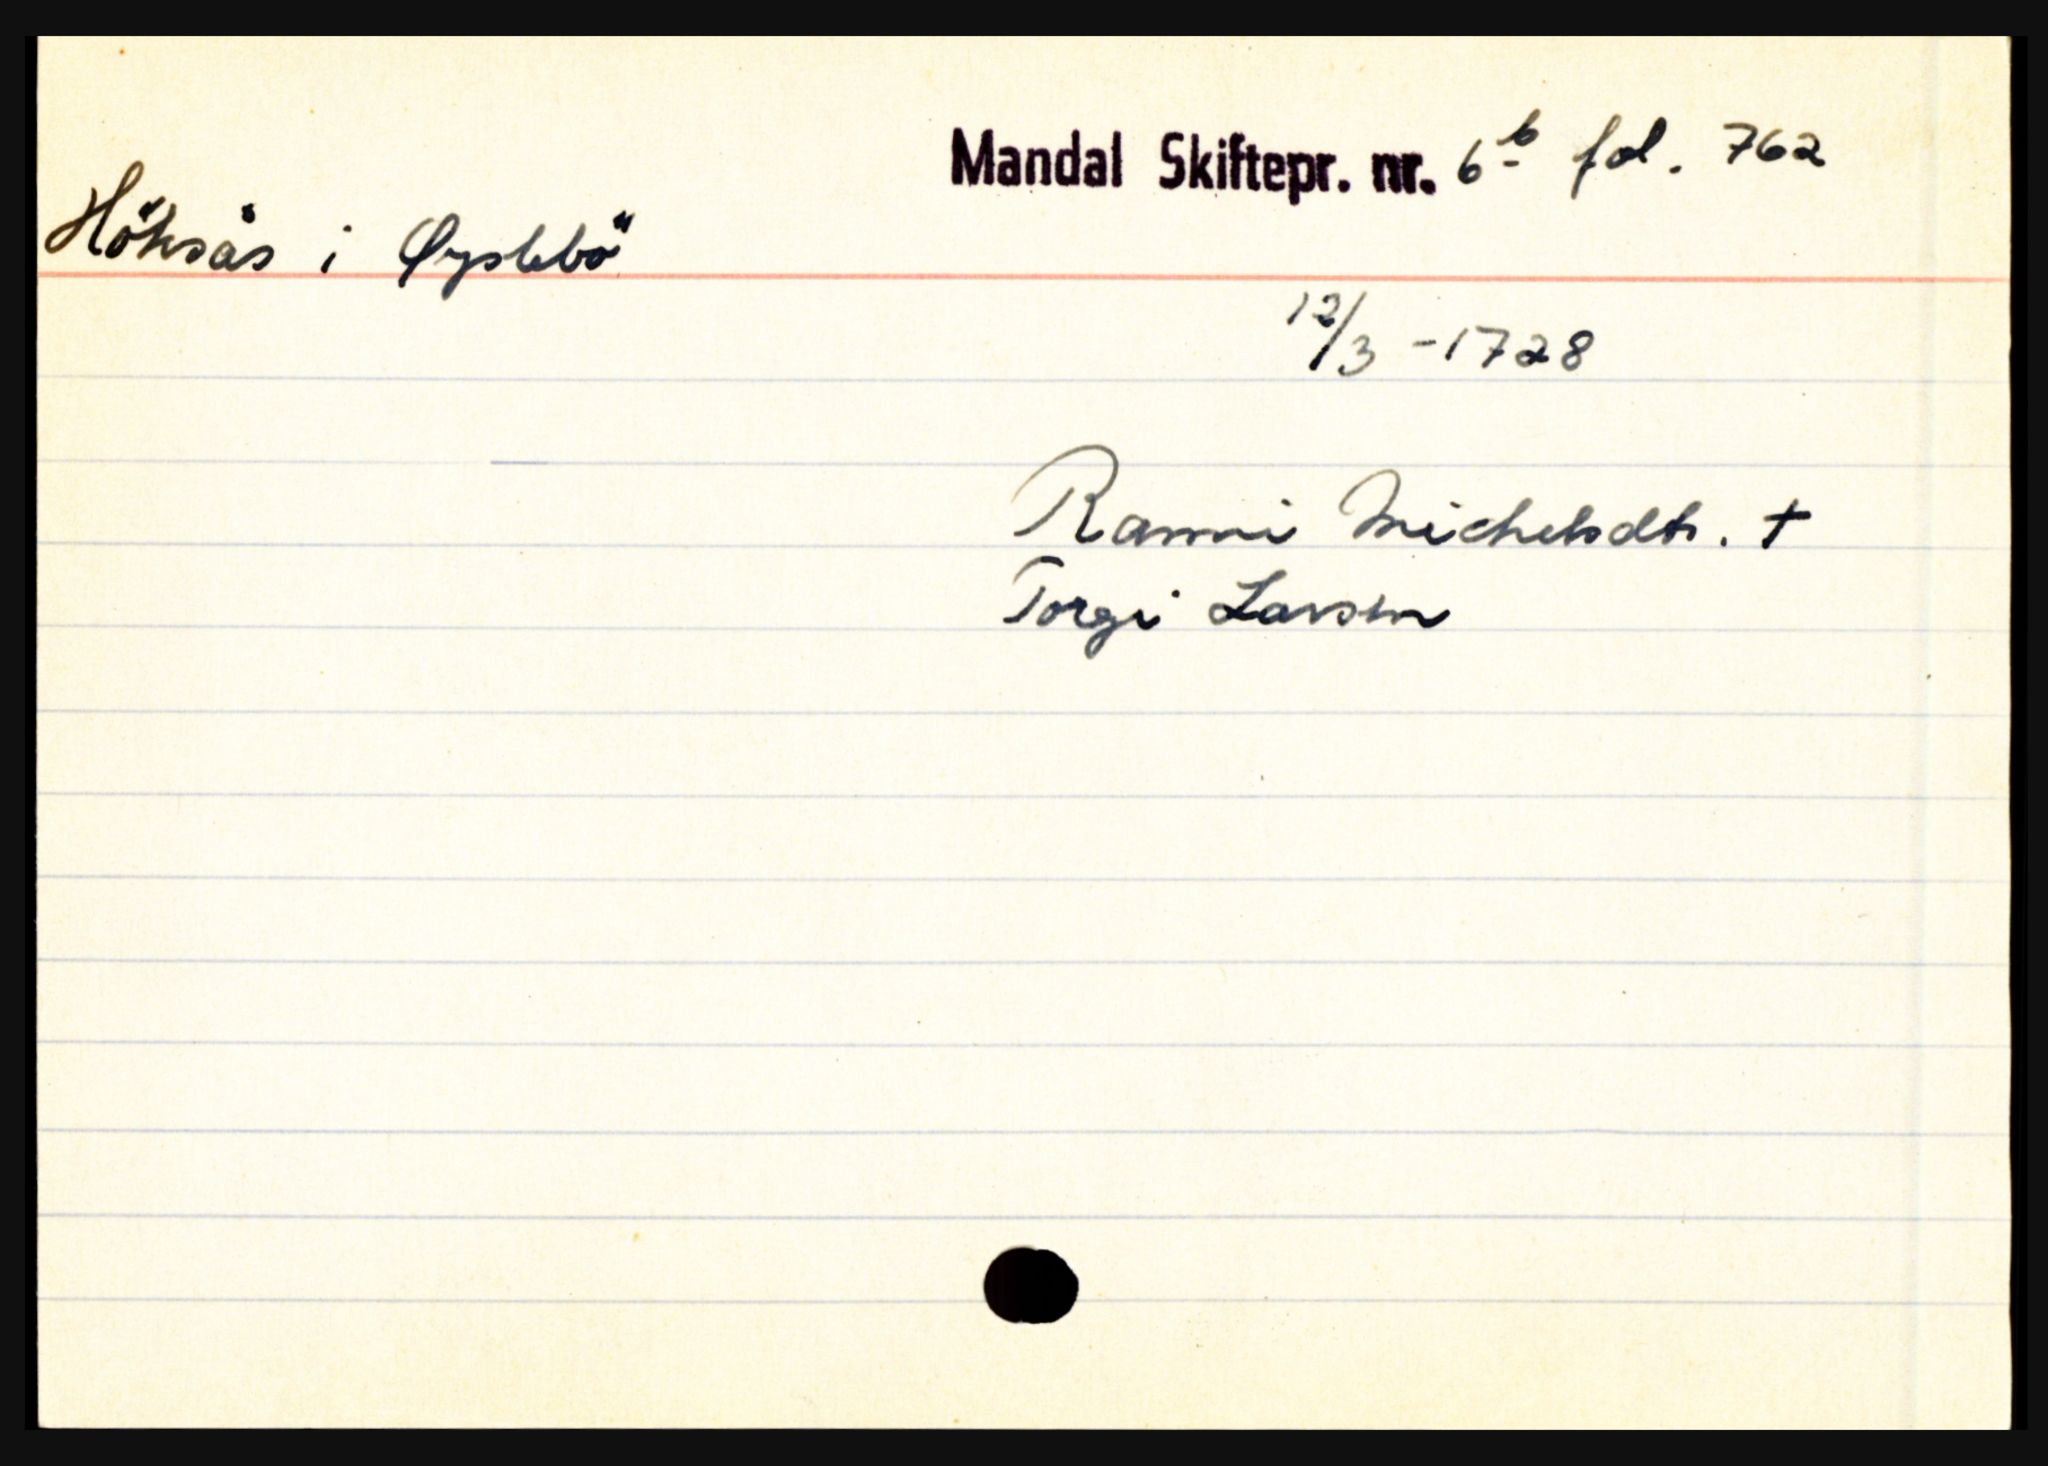 Mandal Skiftepr. nr. 6b fol. 762
Höksås i Øyslebö
12/3 - 1728
Ranni Michelsdtr. †
Torgi Larsen